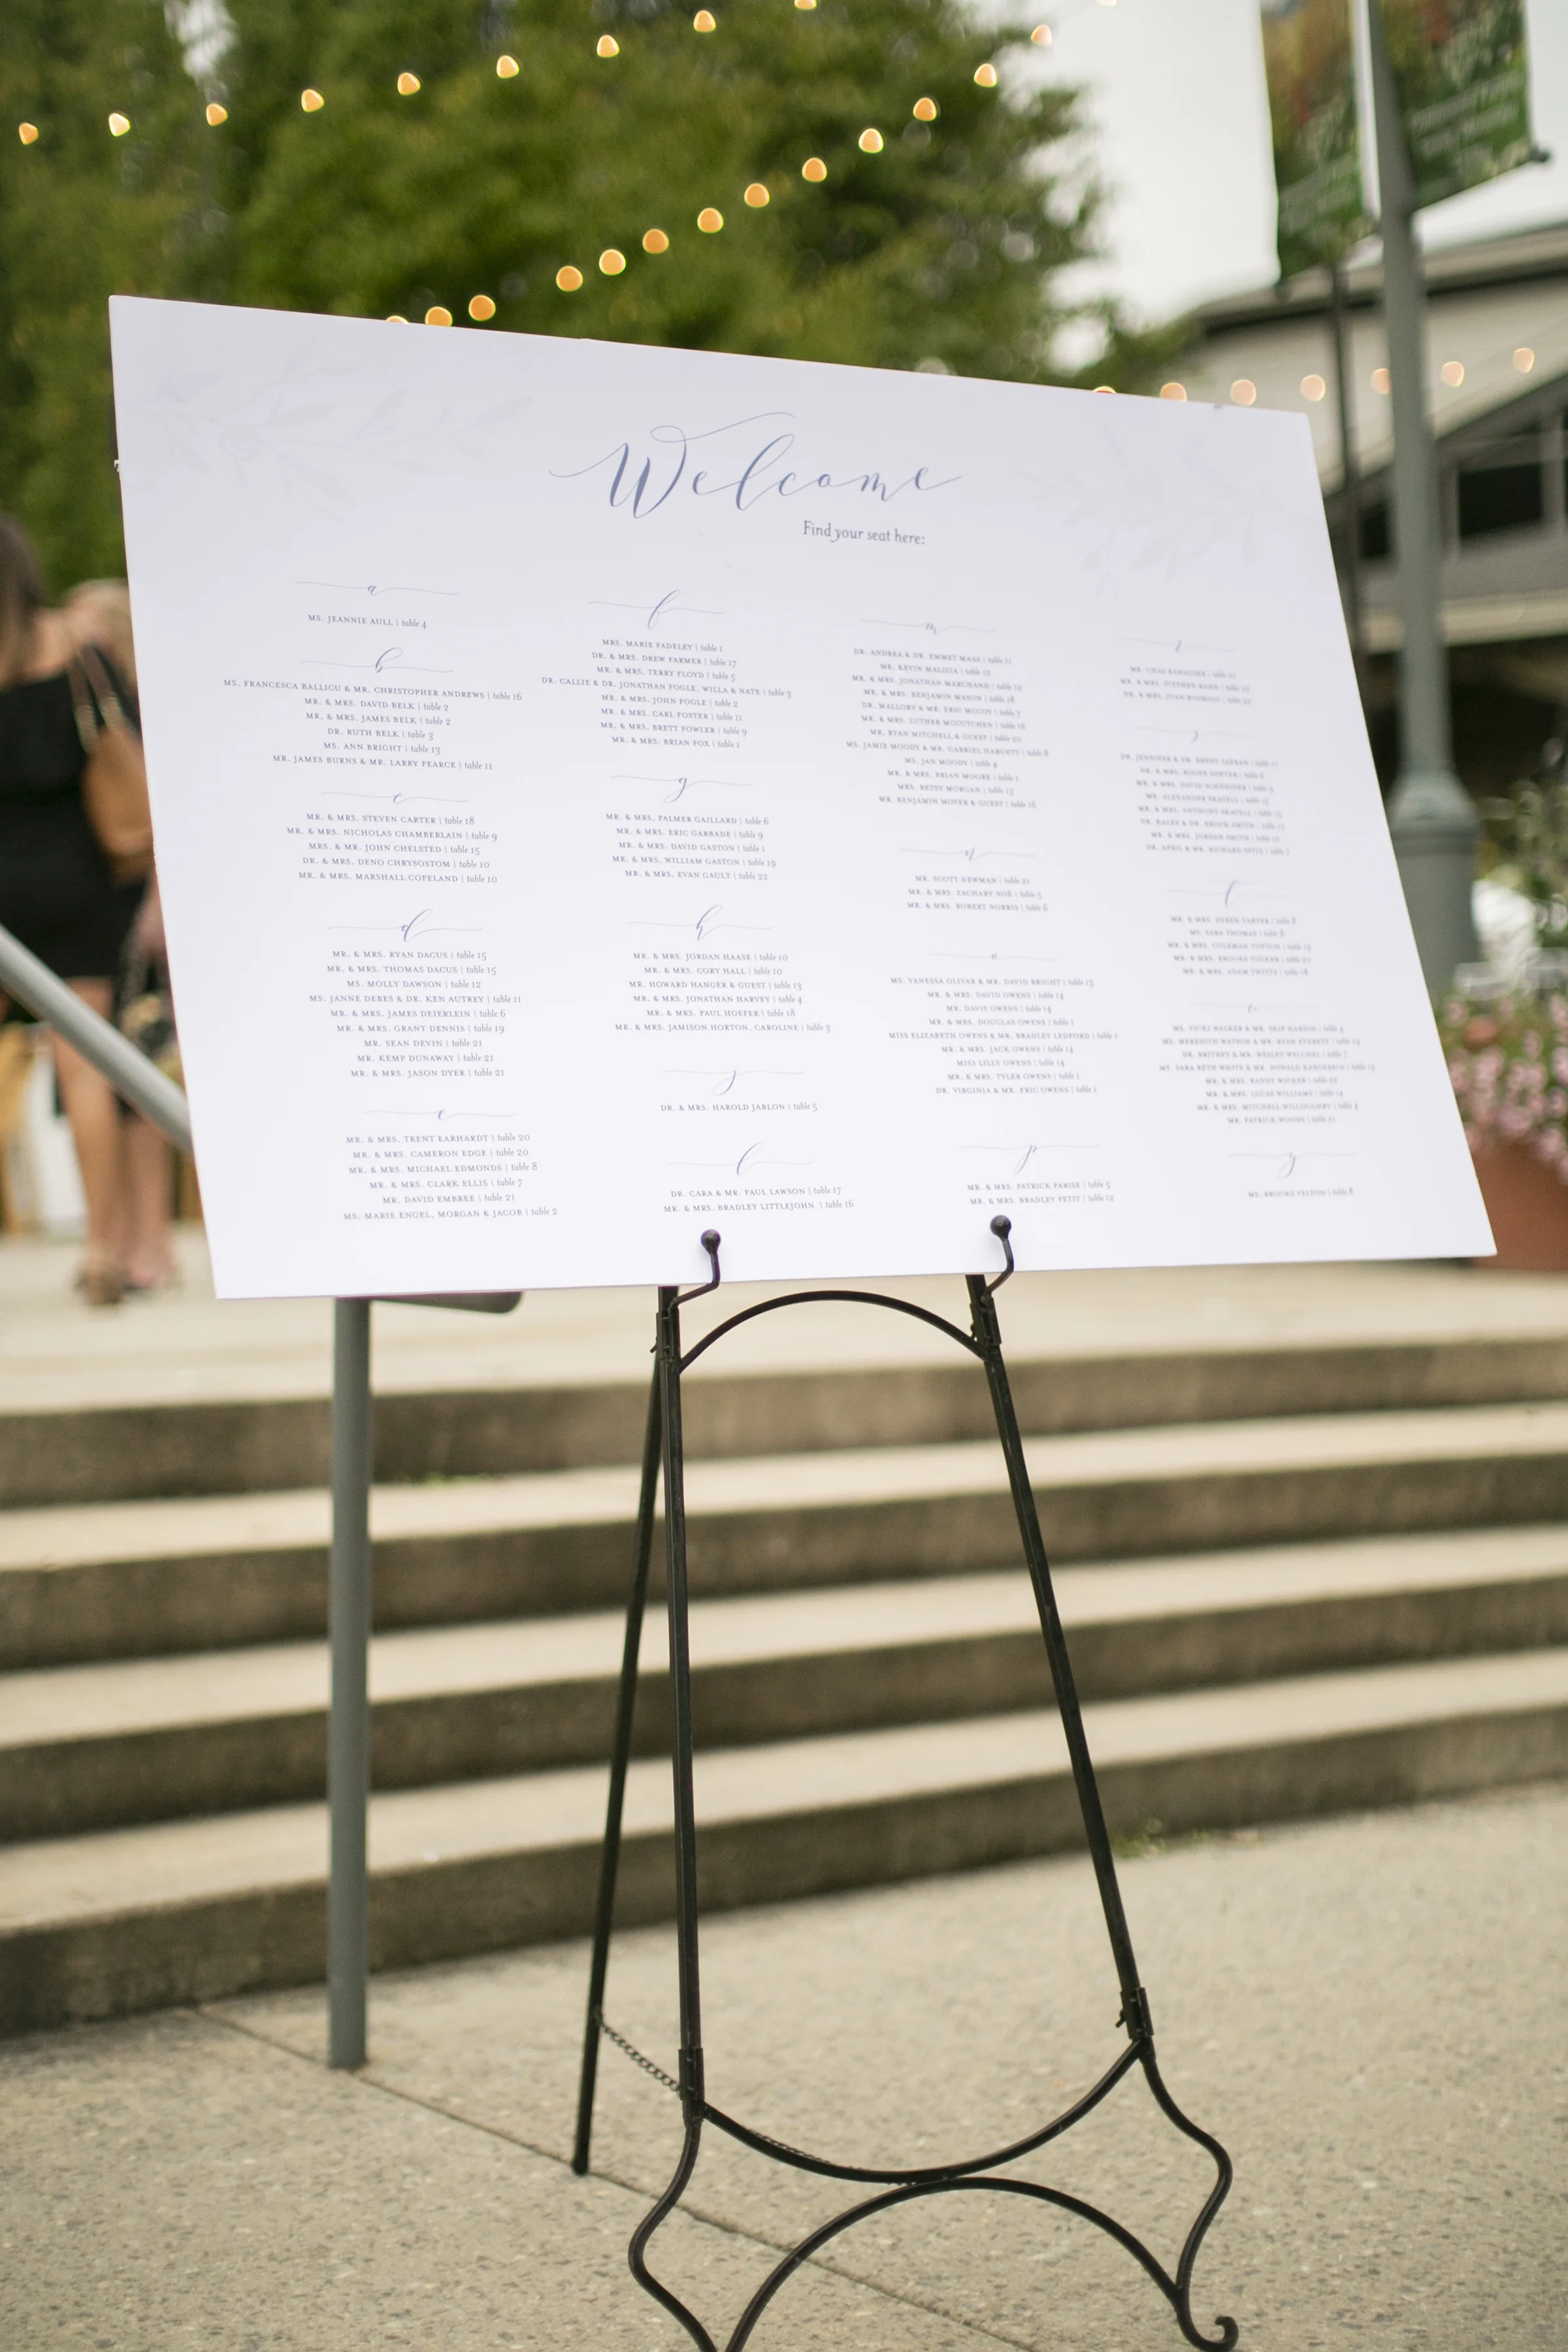 Welcome
Find your seat here:
a
MS. JEANNIE AULL | table 4
b
MS. FRANCESCA BALLICU & MR. CHRISTOPHER ANDREWS | table 16
MR. & MRS. DAVID BELK | table 2
MR. & MRS. JAMES BELK | table 2
DR. RUTH BELK | table 3
MS. ANN BRIGHT | table 13
MR. JAMES BURNS & MR. LARRY PEARCE | table 11
c
MR. & MRS. STEVEN CARTER | table 18
MR. & MRS. NICHOLAS CHAMBERLAIN | table 9
MRS. & MR. JOHN CHELSTED | table 15
DR. & MRS. DENO CHRYSOSTOM | table 10
MR. & MRS. MARSHALL COPELAND | table 10
d
MR. & MRS. RYAN DACUS | table 15
MR. & MRS. THOMAS DACUS | table 15
MS. MOLLY DAWSON | table 12
MS. JANNE DEBES & DR. KEN AUTREY | table 11
MR. & MRS. JAMES DEIERLEIN | table 6
MR. & MRS. GRANT DENNIS | table 19
MR. SEAN DEVIN | table 21
MR. KEMP DUNAWAY | table 21
MR. & MRS. JASON DYER | table 21
e
MR. & MRS. TRENT EARHARDT | table 20
MR. & MRS. CAMERON EDGE | table 20
MR. & MRS. MICHAEL EDMONDS | table 8
MR. & MRS. CLARK ELLIS | table 7
MR. DAVID EMBREE | table 21
MS. MARIE ENGEL, MORGAN & JACOB | table 2
f
MRS. MARIE FADELEY | table 1
DR. & MRS. DREW FARMER | table 17
MR. & MRS. TERRY FLOYD | table 5
DR. CALLIE & DR. JONATHAN FOGLE, WILLA & NATE | table 3
MR. & MRS. JOHN FOGLE | table 2
MR. & MRS. CARL FOSTER | table 11
MR. & MRS. BRETT FOWLER | table 9
MR. & MRS. BRIAN FOX | table 1
g
MR. & MRS. PALMER GAILLARD | table 6
MR. & MRS. ERIC GARBADE | table 9
MR. & MRS. DAVID GASTON | table 1
MR. & MRS. WILLIAM GASTON | table 19
MR. & MRS. EVAN GAULT | table 22
h
MR. & MRS. JORDAN HAASE | table 10
MR. & MRS. CORY HALL | table 10
MR. HOWARD HANGER & GUEST | table 13
MR. & MRS. JONATHAN HARVEY | table 4
MR. & MRS. PAUL HOEFER | table 18
MR. & MRS. JAMISON HORTON, CAROLINE | table 3
j
DR. & MRS. HAROLD JABLON | table 5
l
DR. CARA & MR. PAUL LAWSON | table 17
MR. & MRS. BRADLEY LITTLEJOHN | table 16
m
DR. ANDREA & DR. EMMET MAAS | table 11
MR. KEVIN MALIZIA | table 12
MR. & MRS. JONATHAN MARCHAND | table 12
MR. & MRS. BENJAMIN MASON | table 18
DR. MALLORY & MR. ERIC MCCOY | table 7
MR. & MRS. LUTHER MCCUTCHEN | table 16
MR. RYAN MITCHELL & GUEST | table 20
MS. JAMIE MOODY & MR. GABRIEL HARGETT | table 8
MS. JAN MOODY | table 4
MR. & MRS. BRIAN MOORE | table 1
MRS. BETSY MORGAN | table 13
MR. BENJAMIN MOYER & GUEST | table 16
n
MR. SCOTT NEWMAN | table 21
MR. & MRS. ZACHARY NOE | table 5
MR. & MRS. ROBERT NORRIS | table 6
o
MS. VANESSA OLIVAR & MR. DAVID BRIGHT | table 13
MR. & MRS. DAVID OWENS | table 14
MR. DAVIS OWENS | table 14
MR. & MRS. DOUGLAS OWENS | table 1
MISS ELIZABETH OWENS & MR. BRADLEY LEDFORD | table 1
MR. & MRS. JACK OWENS | table 14
MISS LILLY OWENS | table 14
MR. & MRS. TYLER OWENS | table 1
DR. VIRGINIA & MR. ERIC OWENS | table 1
p
MR. & MRS. PATRICK PARISE | table 5
MR. & MRS. BRADLEY PETIT | table 12
r
MR. & MRS. STEPHEN
DR. & MRS. JUAN RODRIGO | table
s
DR. JENNIFER & DR. BRENT SAFRAN | table 17
DR. & MRS. ROGER SAWYER | table
MR. & MRS. DAVID SCHNEIDER | table
MR. ALEXANDER SKATELL | table 15
MR. & MRS. ANTHONY SKATELL | table 15
DR. & DR. BROCK SMITH | table 17
MR. & MRS. JORDAN SMITH | table
DR. APRIL & MR. RICHARD | table 7
t
MR. & MRS. DEREK TARVER | table 8
MS. SARA THOMAS | table 8
MR. & MRS. COLEMAN TOTTON | table 19
MR. & MRS. BROOKS TUCKER | table 20
MR. & MRS. ADAM TWITTY | table 18
MS. VICKI WALKER & MR. SKIP | table 4
MS. MEREDITH WATSON & MR. RYAN EVERETT | table 19
DR. BRITNEY & MR. WESLEY WELCHEL | table 7
MS. SARA BETH WHITE & MR. DONALD | table 13
MR. & MRS. RANDY WILKER | table
MR. & MRS. LUCAS WILLIAMS | table 14
MR. & MRS. MITCHELL WILLOUGHBY | table 4
MR. PATRICK WOODS | table 21
y
MS. BROOKE YELTON | table 8